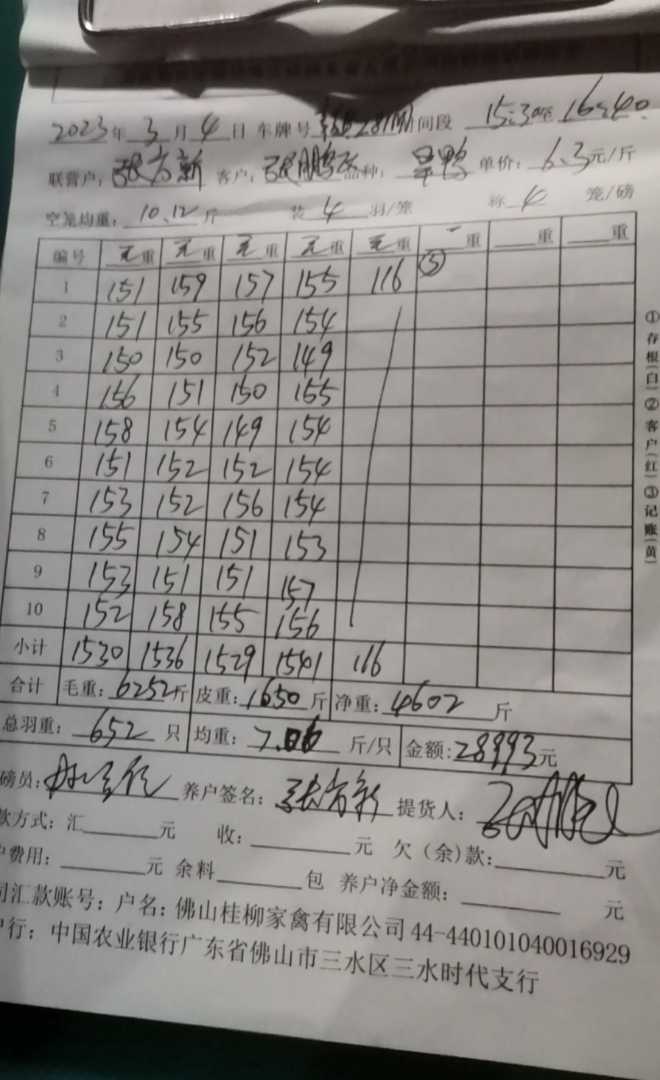 2023年 3月 4日 车牌号 间段 15:30至16:40
联营户：张方新 客户：张鹏 品种：旱鸭 单价：6.3元/斤
空笼均重：10.12斤 装 4 羽/笼 称 4 笼/磅
编号 毛重 毛重 毛重 毛重 毛重 重 重 重
1 151 159 157 155 116 ⑤
2 151 155 156 154
3 150 150 152 149
4 156 151 150 155
5 158 154 149 154
6 151 152 152 154
7 153 152 156 154
8 155 154 151 153
9 153 151 151 157
10 152 158 155 156
小计 1530 1536 1529 1541 116
合计 毛重：6252斤 皮重：1650斤 净重：4602斤
总羽重：652只 均重：7.06斤/只 金额：28993元
磅员： 养户签名：张方新 提货人：
款方式：汇 元 收： 元 欠（余）款： 元
户费用： 元 余料 包 养户净金额： 元
司汇款账号：户名：佛山桂柳家禽有限公司 44-440101040016929
户行：中国农业银行广东省佛山市三水区三水时代支行
①存根（白）②客户（红）③记账（黄）